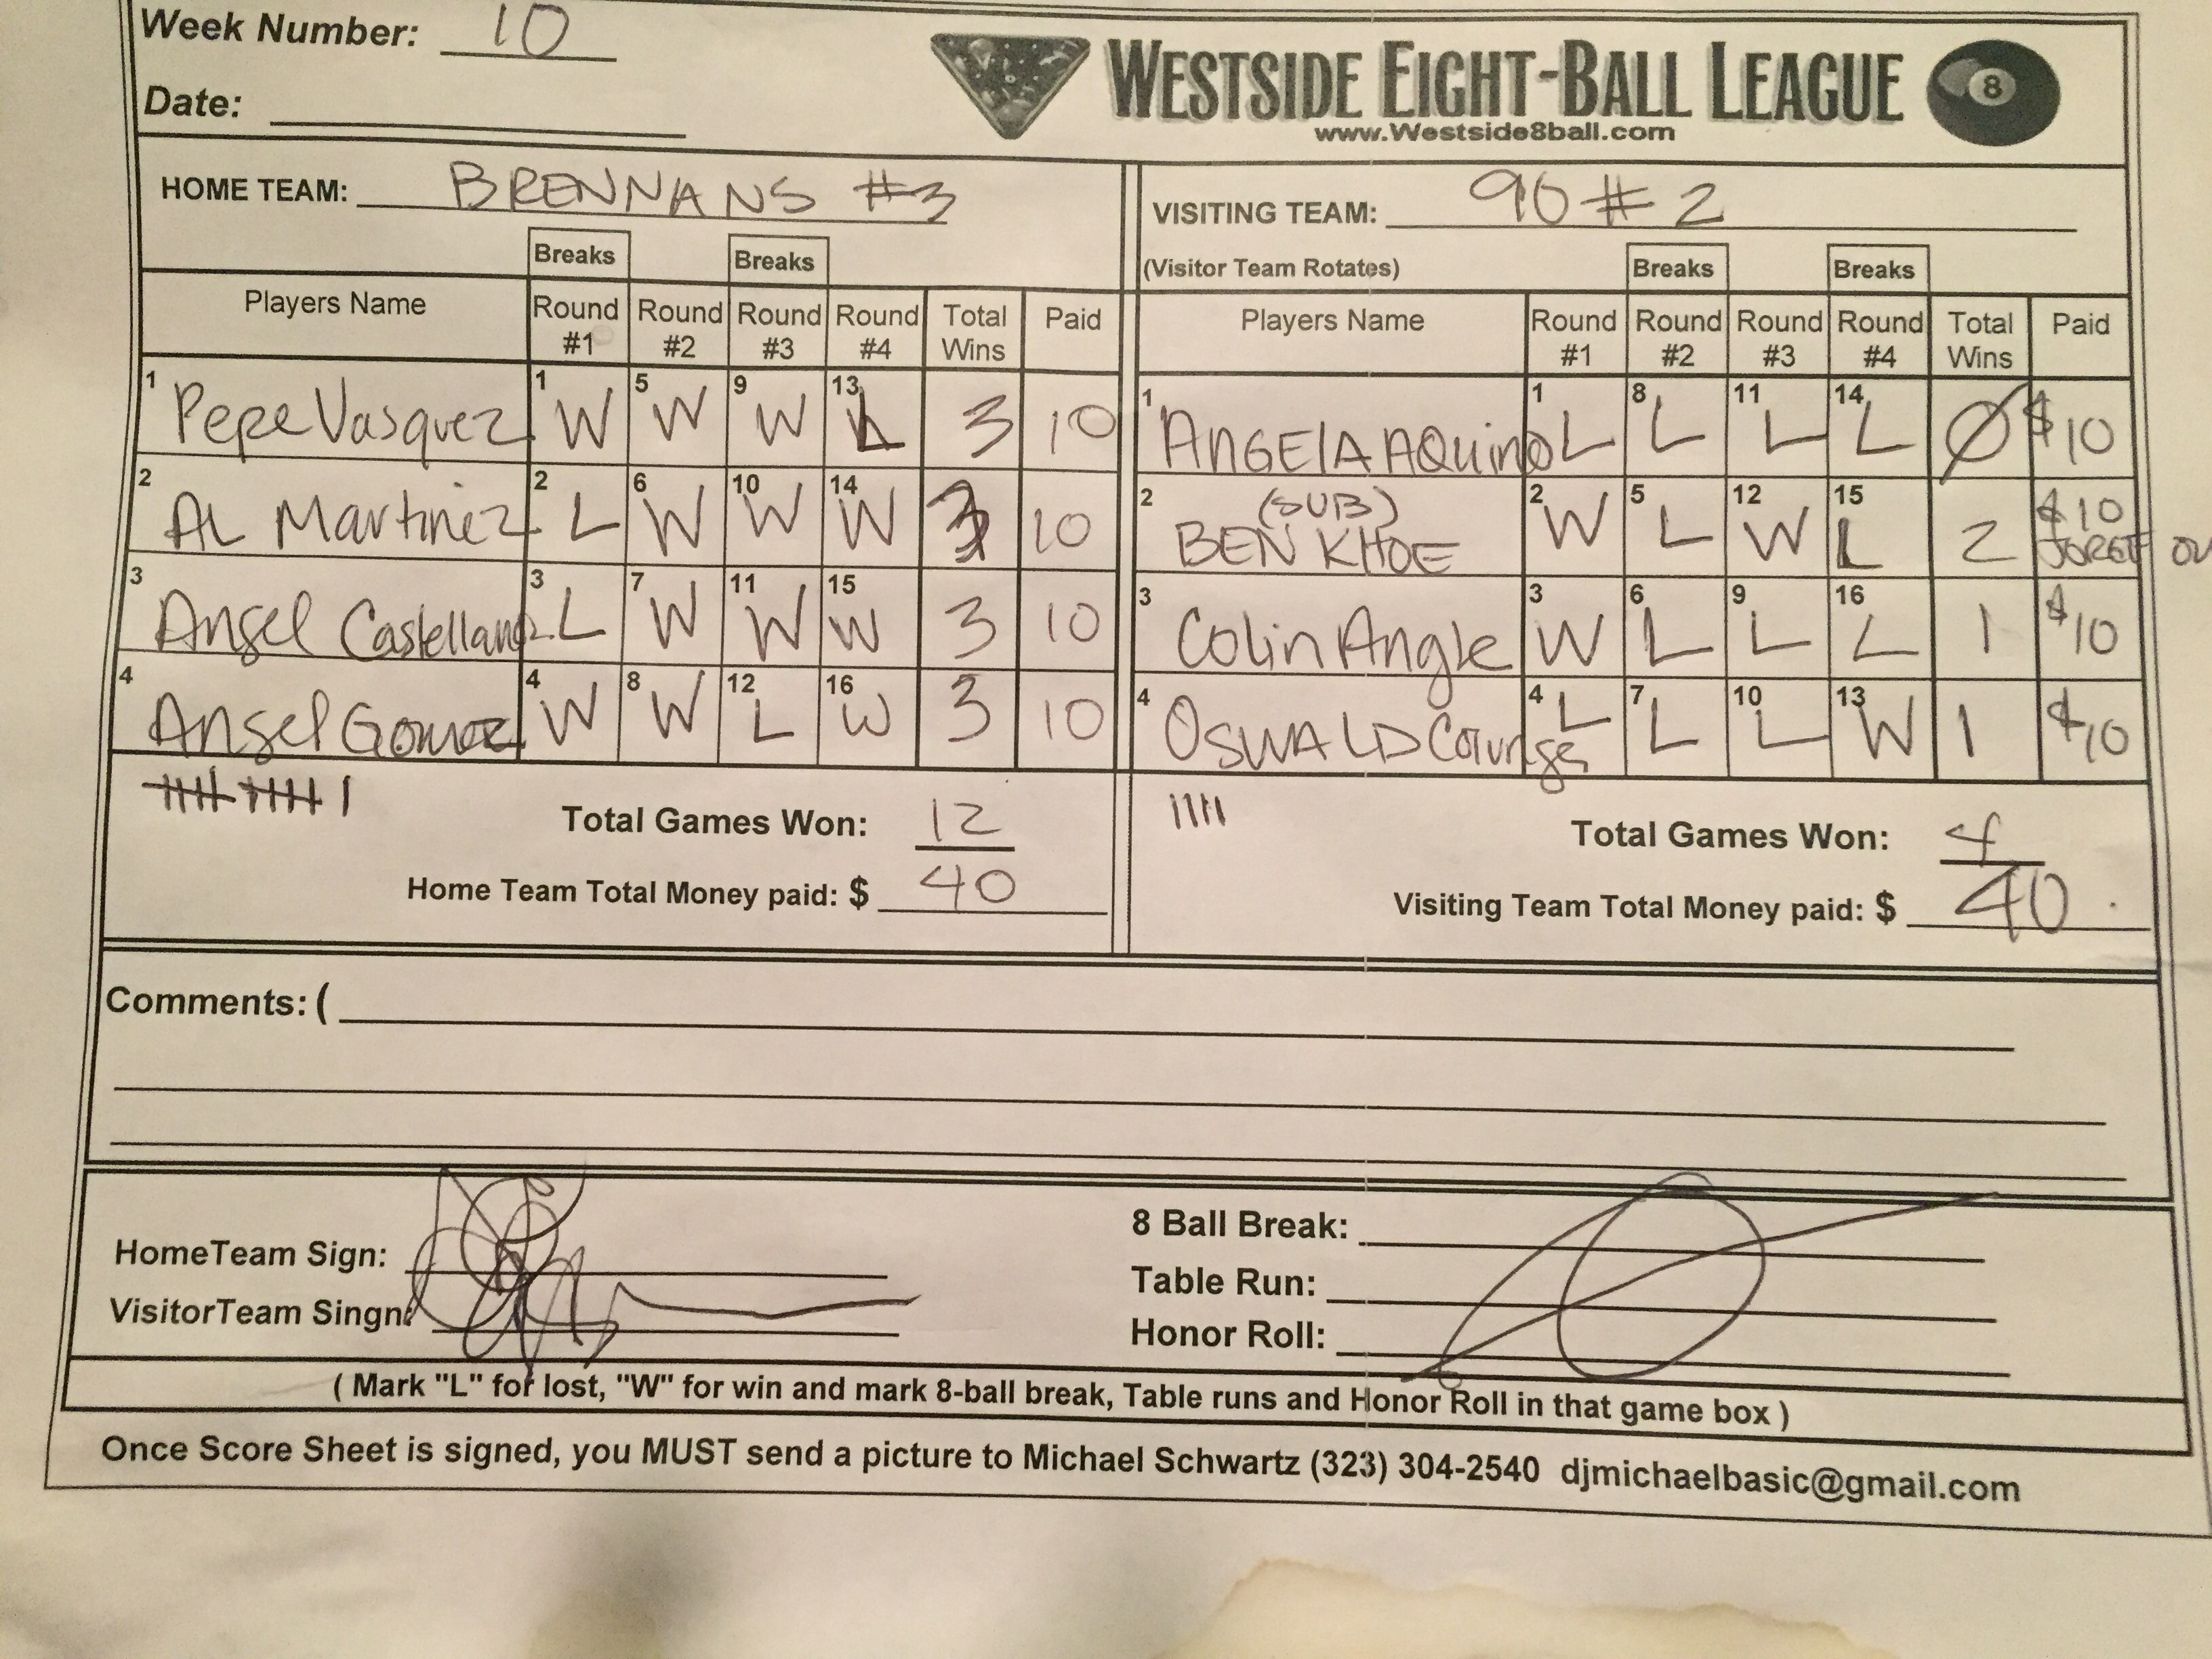 Week Number: 10
Date:
WESTSIDE EIGHT-BALL LEAGUE 8
www.Westside8ball.com
HOME TEAM: BRENNANS #3
VISITING TEAM: 90 #2
Breaks Breaks
(Visitor Team Rotates) Breaks Breaks
Players Name Round #1 Round #2 Round #3 Round #4 Total Wins Paid
1 Pepe Vasquez 1 W 5 W 9 W 13 L 3 10
2 AL Martinez 2 L 6 W 10 W 14 W 3 10
3 Angel Castellanoz 3 L 7 W 11 W 15 W 3 10
4 Angel Gomez 4 W 8 W 12 L 16 W 3 10
Total Games Won: 12
Home Team Total Money paid: $ 40
Players Name Round #1 Round #2 Round #3 Round #4 Total Wins Paid
1 ANGElA AQuino 1 L 8 L 11 L 14 L Ø $10
2 (SUB) BEN KHOE 2 W 5 L 12 W 15 L 2 $10 JORGE
3 Colin Angle 3 W 6 L 9 L 16 L 1 $10
4 OSWALD 4 L 7 L 10 L 13 W 1 $10
Total Games Won: 4
Visiting Team Total Money paid: $ 40
Comments: (
HomeTeam Sign:
VisitorTeam Singn:
8 Ball Break:
Table Run:
Honor Roll:
( Mark "L" for lost, "W" for win and mark 8-ball break, Table runs and Honor Roll in that game box )
Once Score Sheet is signed, you MUST send a picture to Michael Schwartz (323) 304-2540 djmichaelbasic@gmail.com